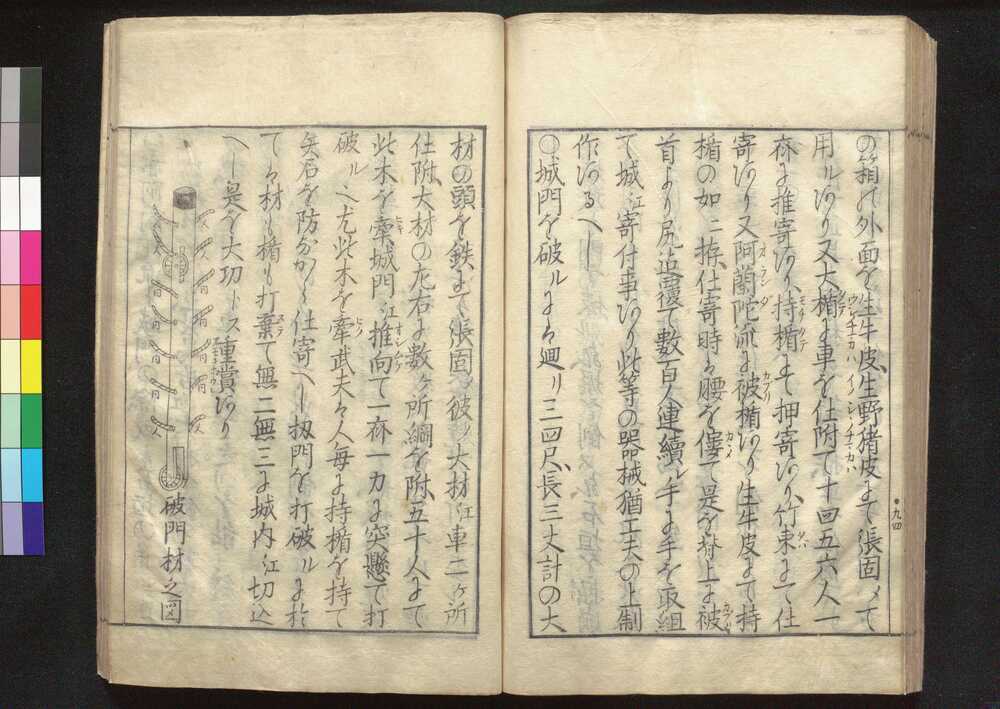 の箱の外面を生牛皮、生野猪皮にて張固メて
用ルあり又大楯に車を仕附て十四五六人一
夲に推寄あり、持楯にて押寄あり、竹束にて仕
寄あり又阿蘭陀流に被楯あり生牛皮にて持
楯の如ニ拵、仕寄時ハ腰を僂て是を背上に被
首より尻迠覆て數百人連續ル手に手を取組
て城江寄付事あり此等の器械猶工夫の上制
作あるへし
○城門を破ルにハ廻リ三四尺、長三丈計の大
材の頭を鉄にて張固メ彼ノ大材江車二ヶ所
仕附、大材の左右に數ヶ所綱を附、五十人にて
此木を牽城門江推向て一夲一力に突懸て打
破ルヘし尤此木を牽武夫ハ人毎に持楯を持て
矢石を防なから仕寄へし扨門を打破ルに於
てハ材も楯も打棄て無二無三に城内江切込
へし是を大功トス重賞あり
破門材之図
九四